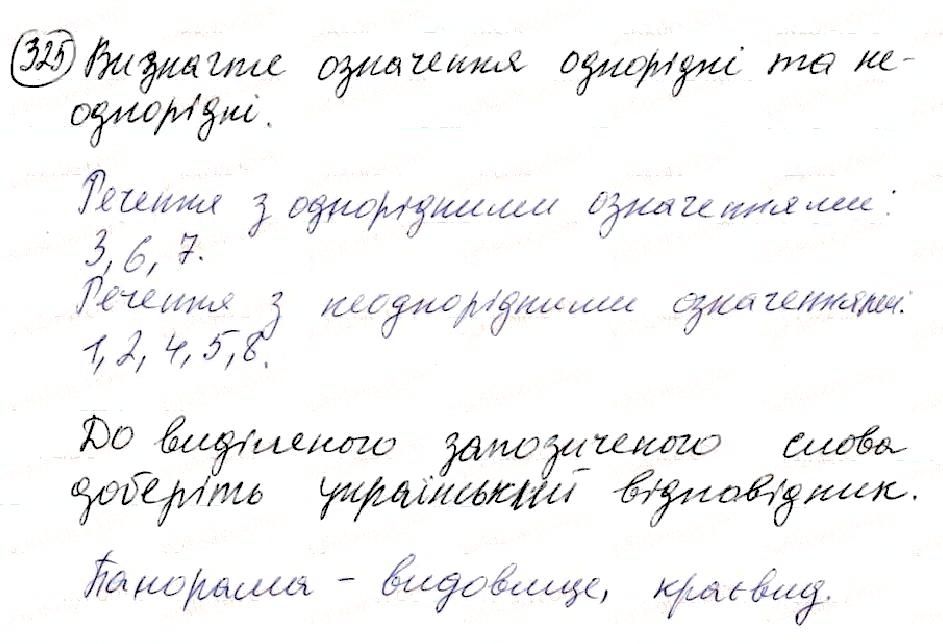 325 Визначте означення однорідні та не-
однорідні.
Речення з однорідними означеннями:
3, 6, 7.
Речення з неоднорідними означеннями:
1, 2, 4, 5, 8.
До виділеного запозиченого слова
доберіть український відповідник.
Панорама – видовище, краєвид.